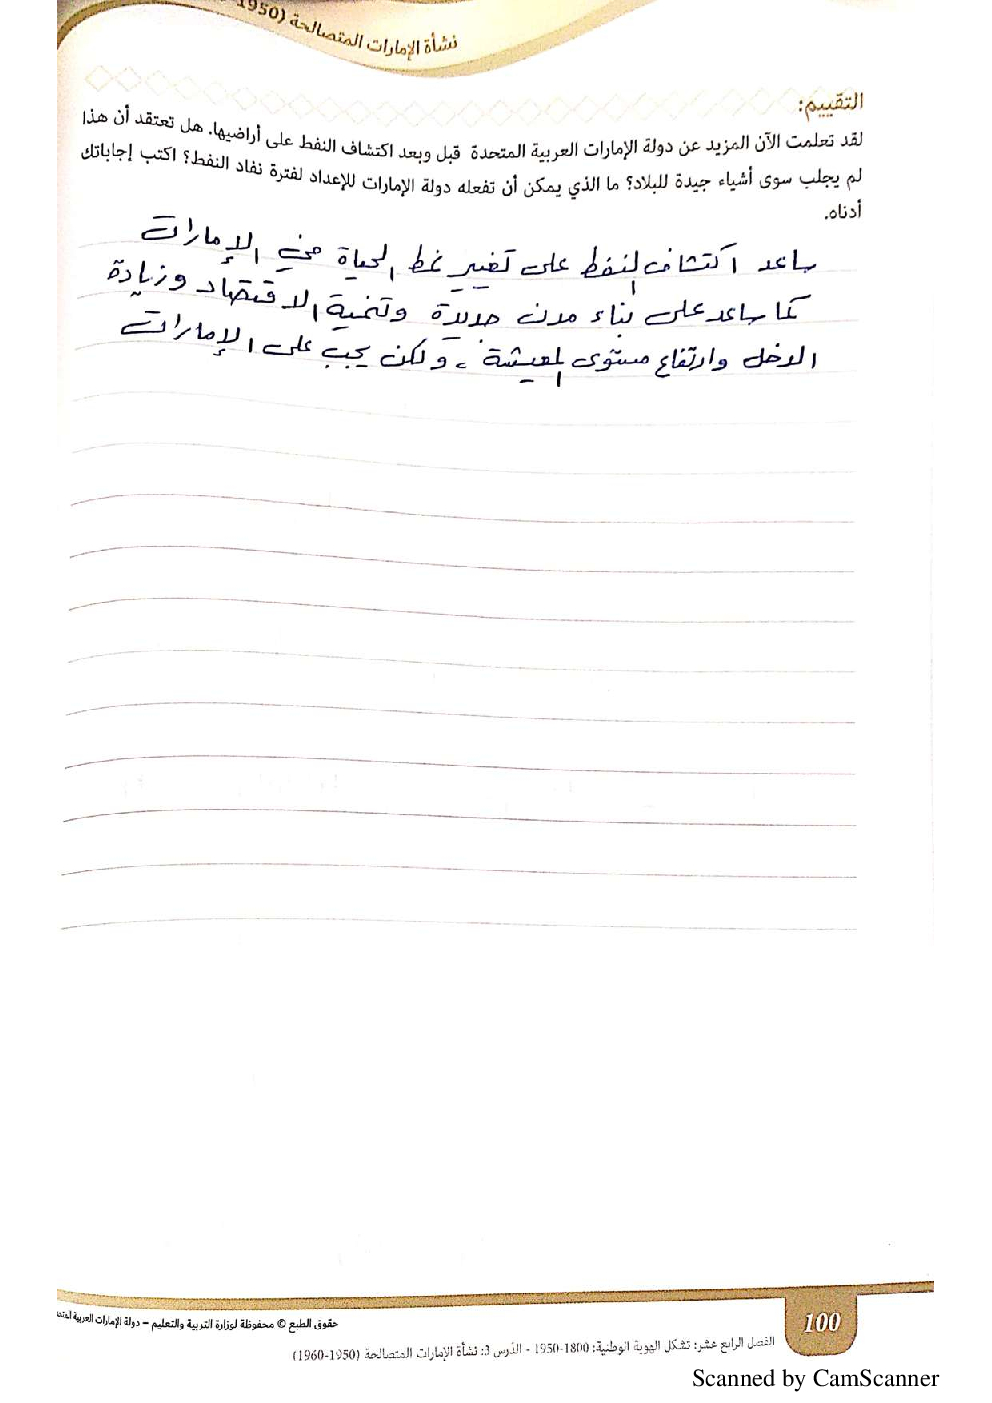 نشأة الإمارات المتصالحة (1950
التقييم:
لقد تعلمت الآن المزيد عن دولة الإمارات العربية المتحدة قبل وبعد اكتشاف النفط على أراضيها. هل تعتقد أن هذا
لم يجلب سوى أشياء جيدة للبلاد؟ ما الذي يمكن أن تفعله دولة الإمارات للإعداد لفترة نفاد النفط؟ اكتب إجاباتك
أدناه.
ساعد اكتشاف النفط على تغيير نمط الحياة في الإمارات
كما ساعد على بناء مدن جديدة وتنمية الاقتصاد وزيادة
الدخل وارتفاع مستوى المعيشة، ولكن يجب على الإمارات
حقوق الطبع © محفوظة لوزارة التربية والتعليم – دولة الإمارات العربية المتحد
100
الفصل الرابع عشر: تشكل الهوية الوطنية: 1800-1950 - الدرس 3: نشأة الإمارات المتصالحة (1950-1960)
Scanned by CamScanner